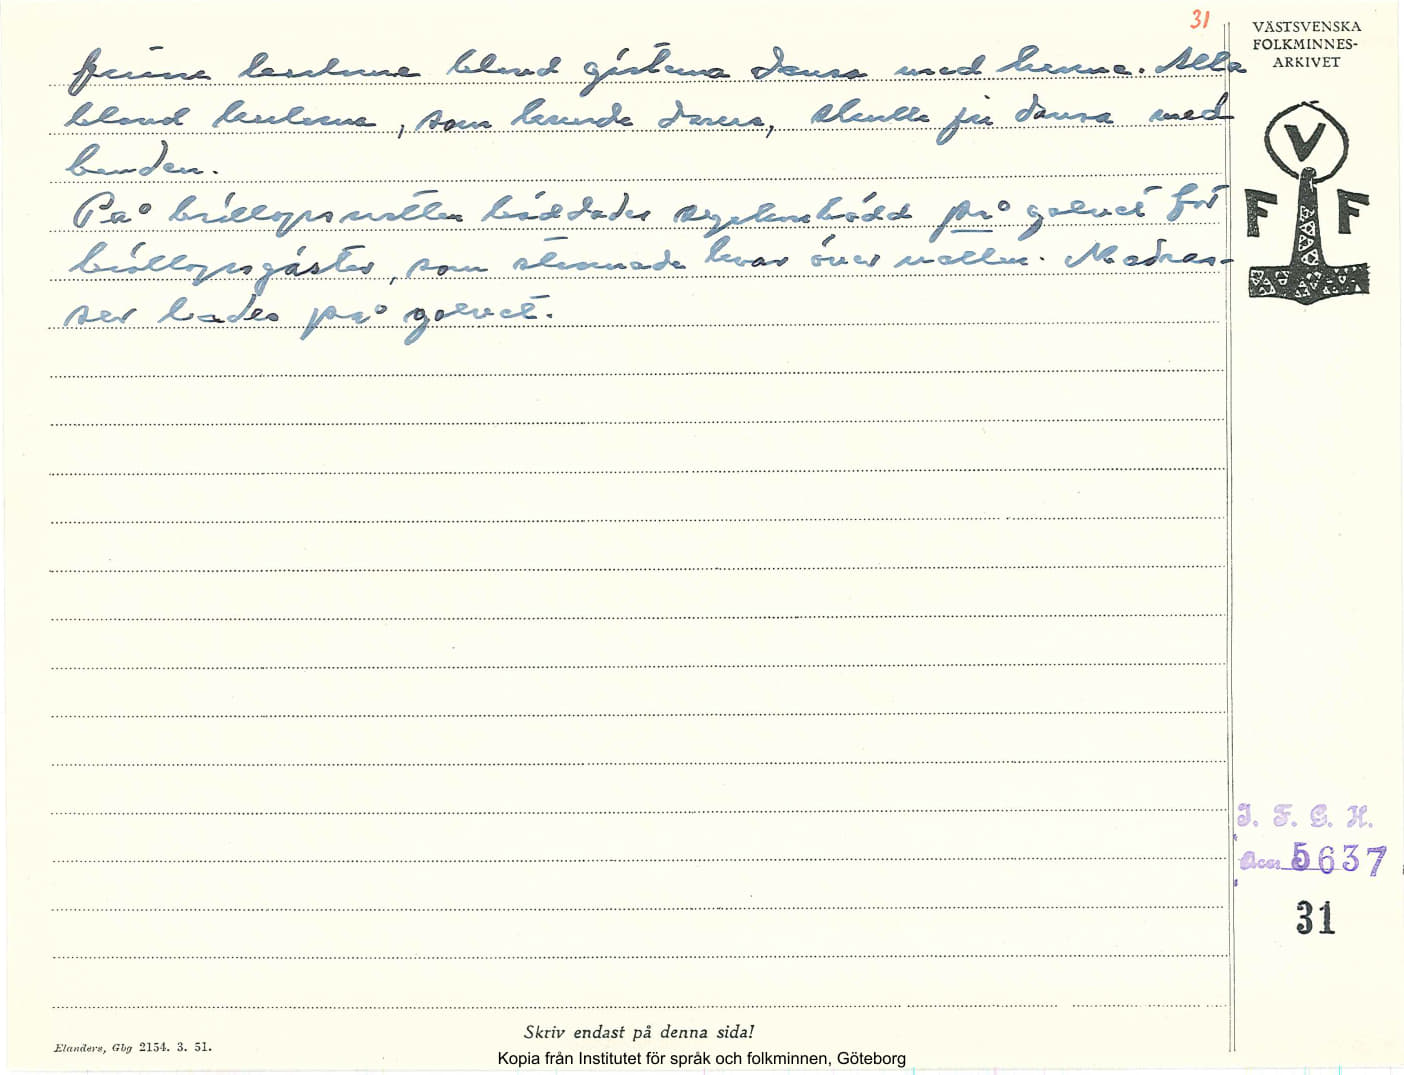 31
VÄSTSVENSKA
FOLKMINNES-
ARKIVET
V
F F
finna karlarna bland gästerna dansa med henne. Alla
bland karlarna, som kunde dansa, skulle ju dansa med
bruden.
På bröllopsnatten bäddades syskonbädd på golvet för
bröllopsgäster, som stannade kvar över natten. Madras-
ser lades på golvet.
I. F. G. H.
Acc. 5637
31
Skriv endast på denna sida!
Elanders, Gbg 2154. 3. 51.
Kopia från Institutet för språk och folkminnen, Göteborg